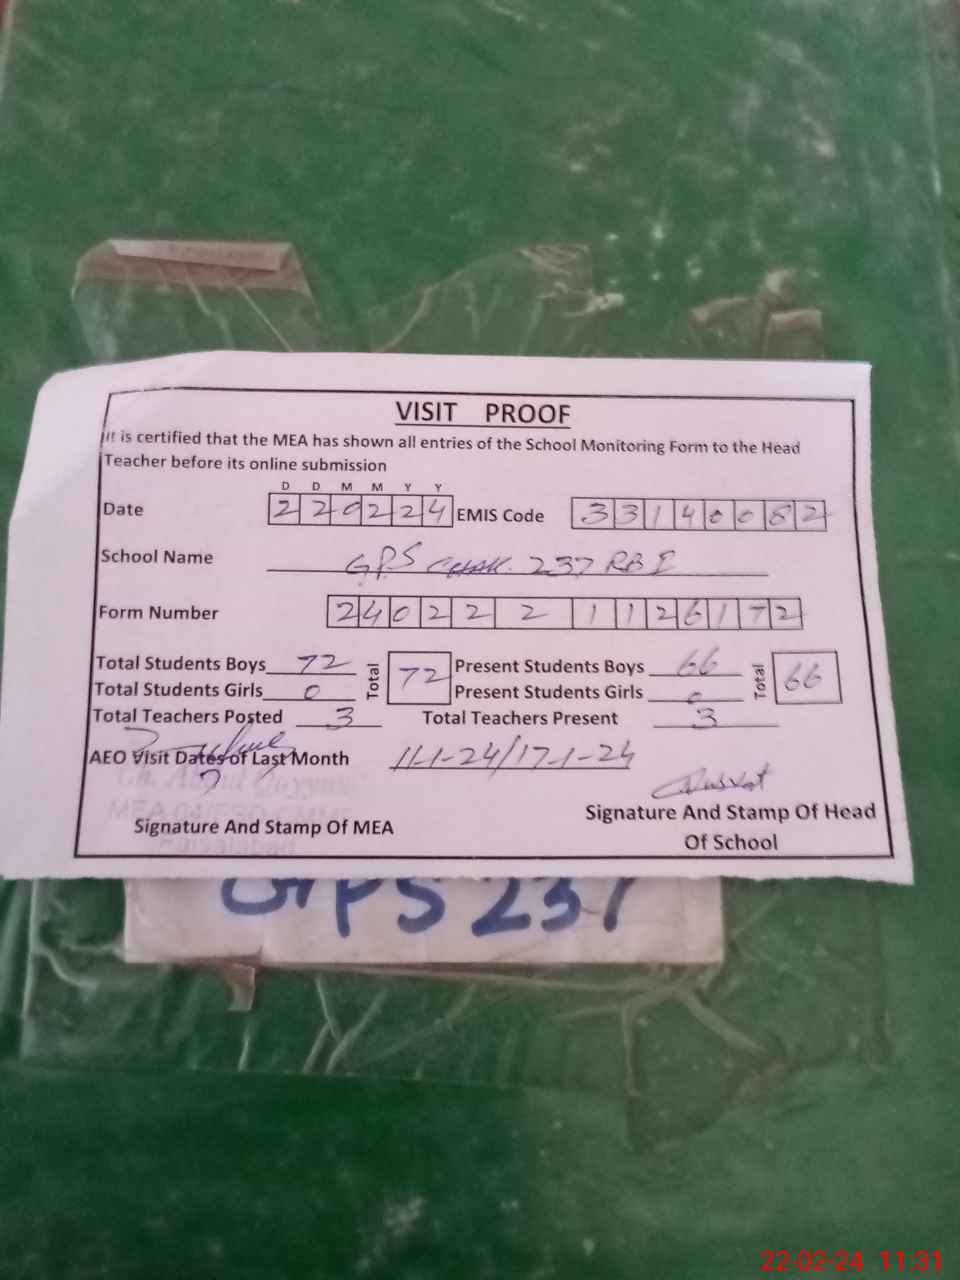 VISIT PROOF
It is certified that the MEA has shown all entries of the School Monitoring Form to the Head
Teacher before its online submission
D D M M Y Y
Date 220224 EMIS Code 33140082
School Name GPS CHAK. 237 RB I
Form Number 2402221126172
Total Students Boys 72 Total 72 Present Students Boys 66 Total 66
Total Students Girls 0 Present Students Girls 0
Total Teachers Posted 3 Total Teachers Present 3
AEO Visit Dates of Last Month 11-1-24/17-1-24
Ch. Abdul Qayyum
MEA
Signature And Stamp Of MEA
Signature And Stamp Of Head
Of School
Faisalabad
GPS 237
22-02-24 11:31